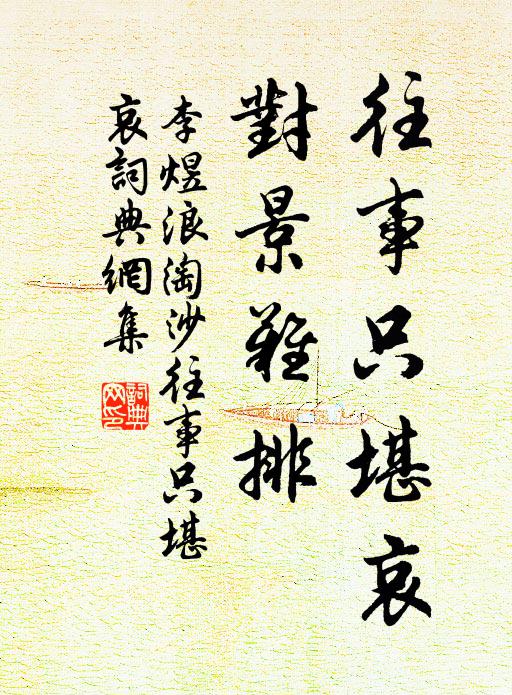 往事只堪哀
對景難排
李煜浪淘沙往事只堪
哀詞典網集
詞典
网印